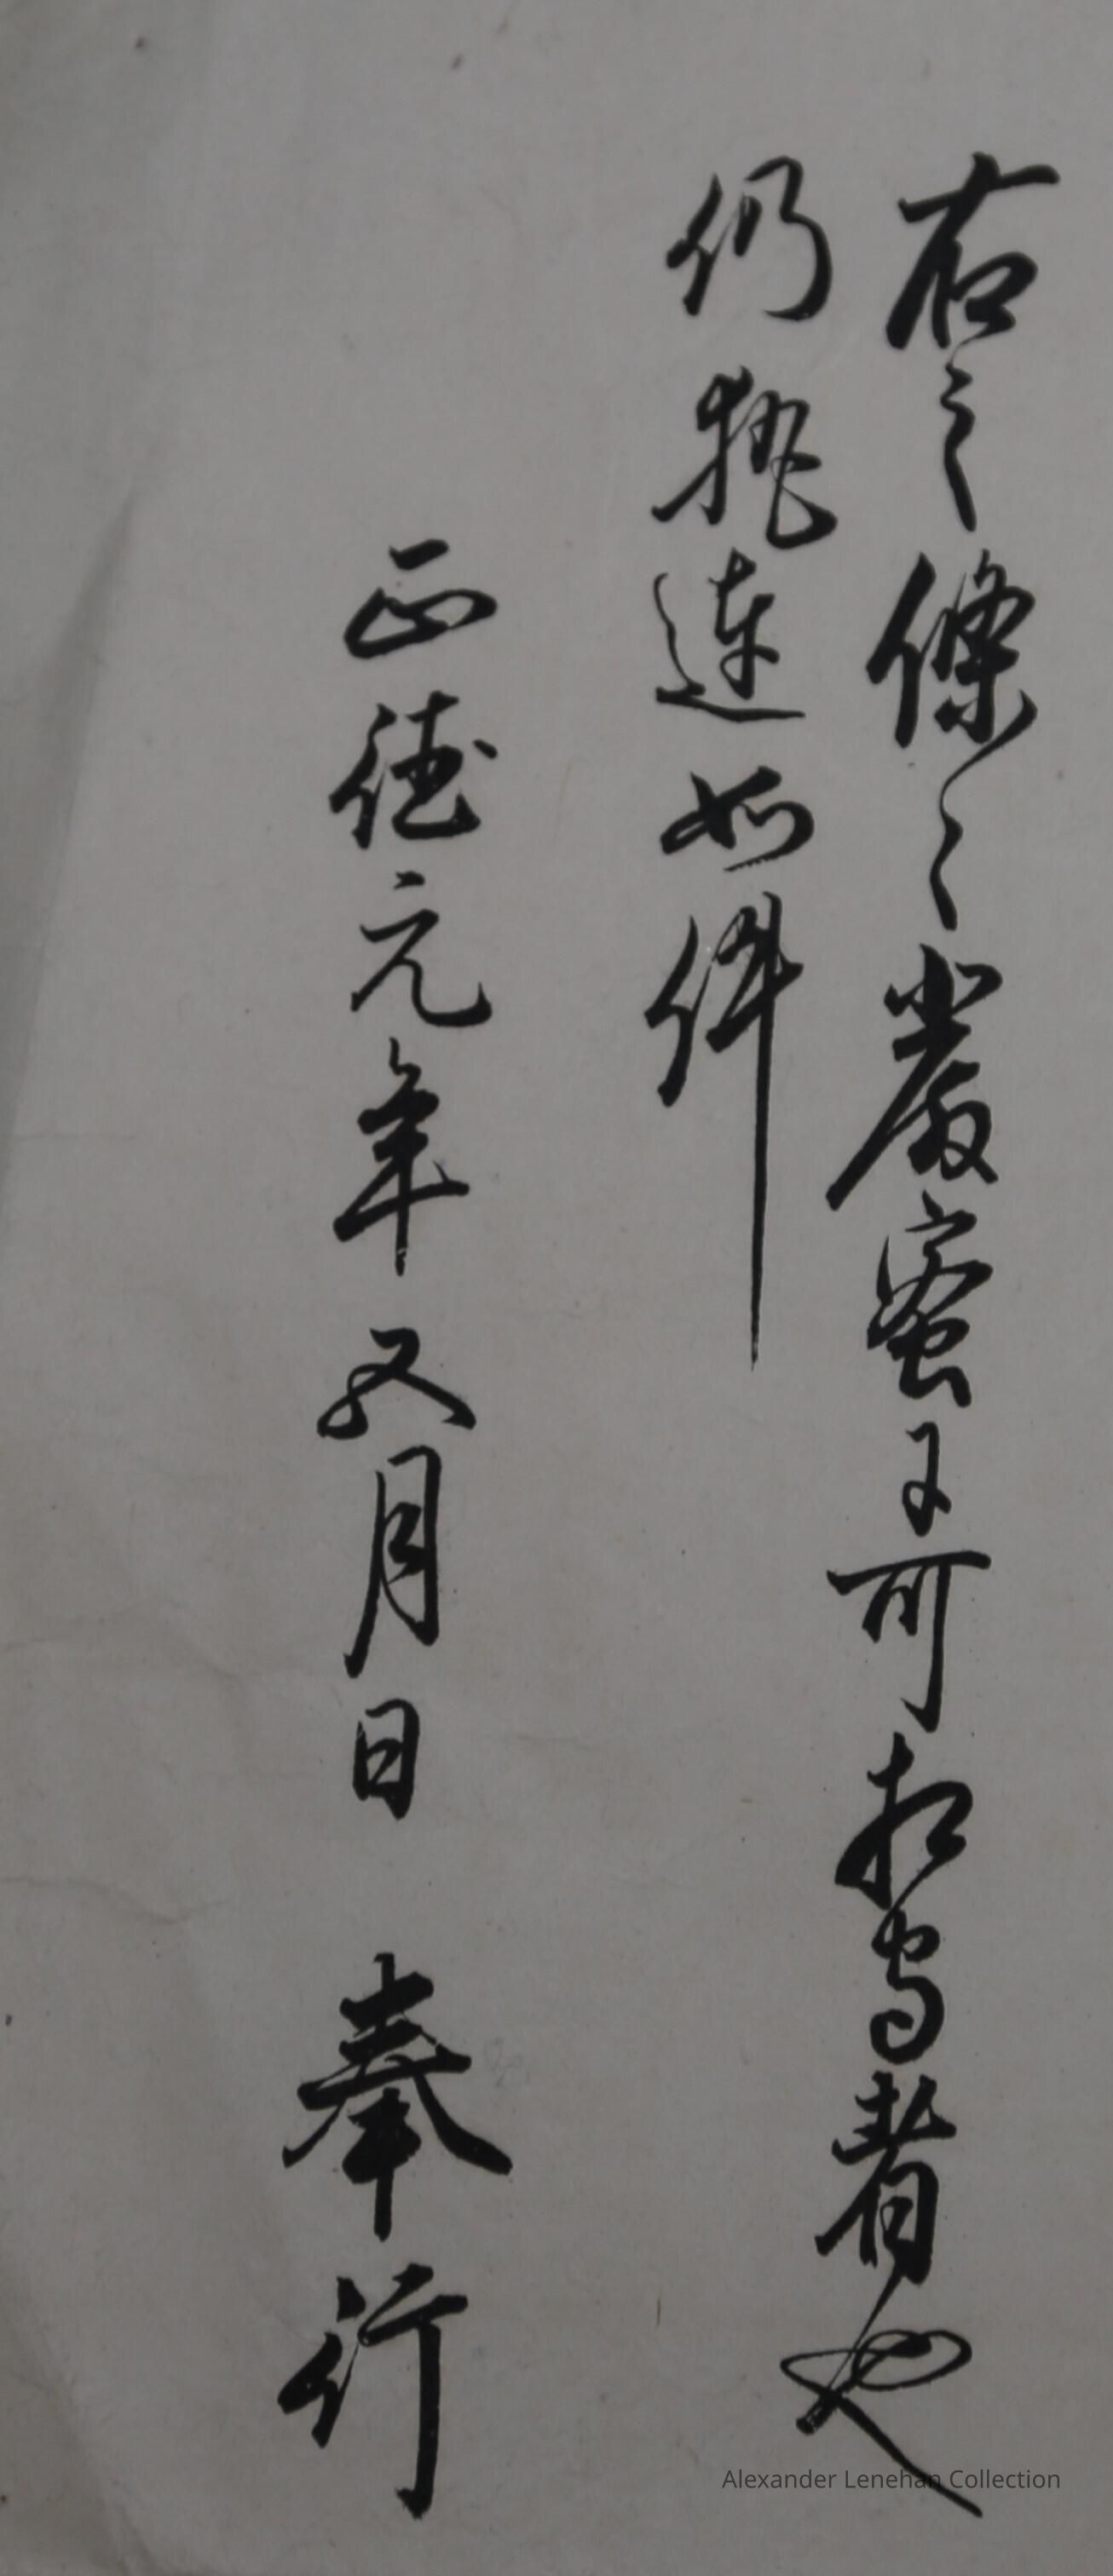 右之條々嚴蜜ニ可相守者也
仍執達如件
正徳元年五月日 奉行
Alexander Lenehan Collection